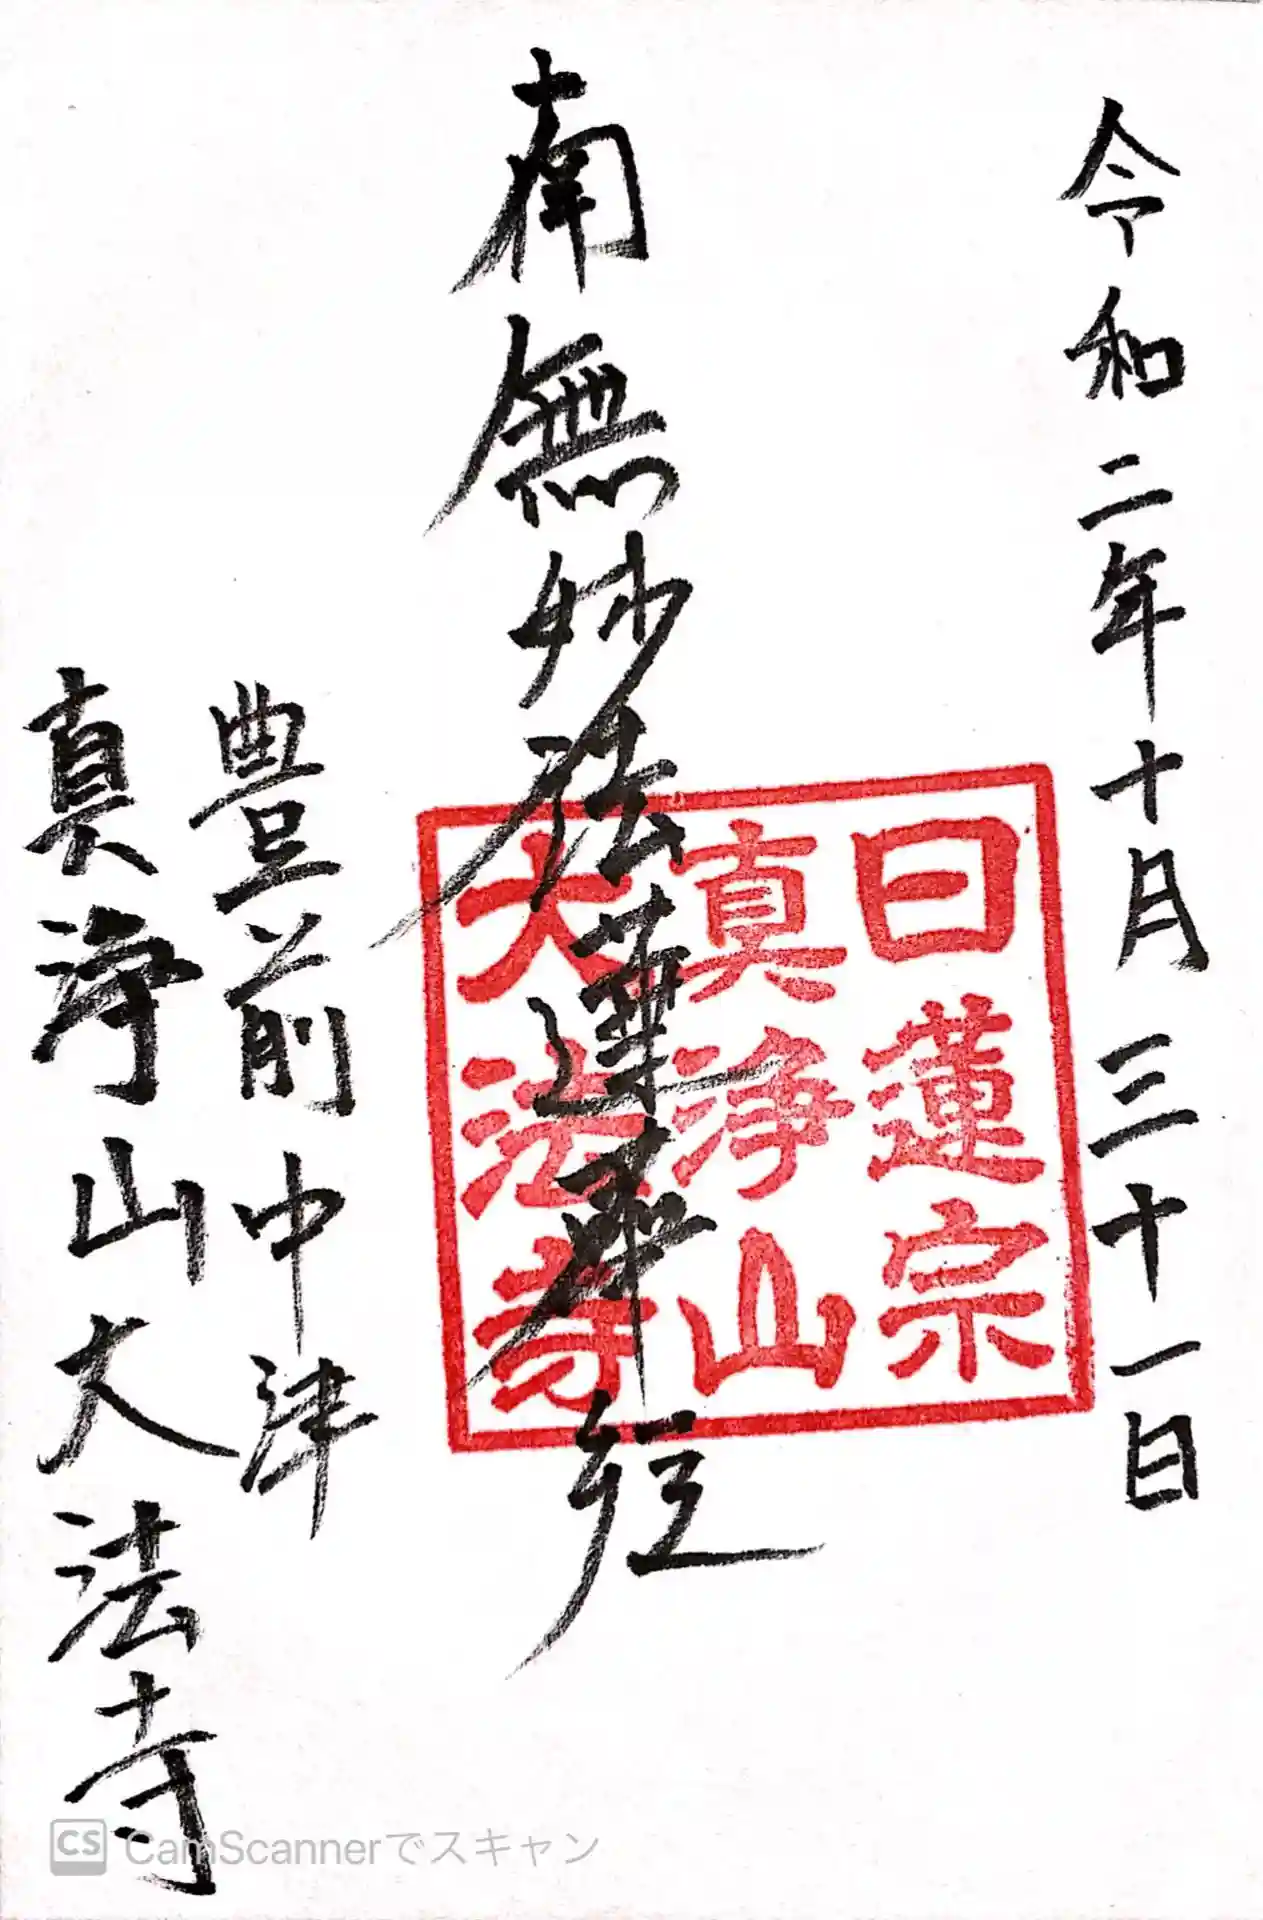 令和二年十月三十一日
南無妙法蓮華経
日蓮宗
真浄山
大法寺
豊前中津
真浄山大法寺
CS CamScannerでスキャン